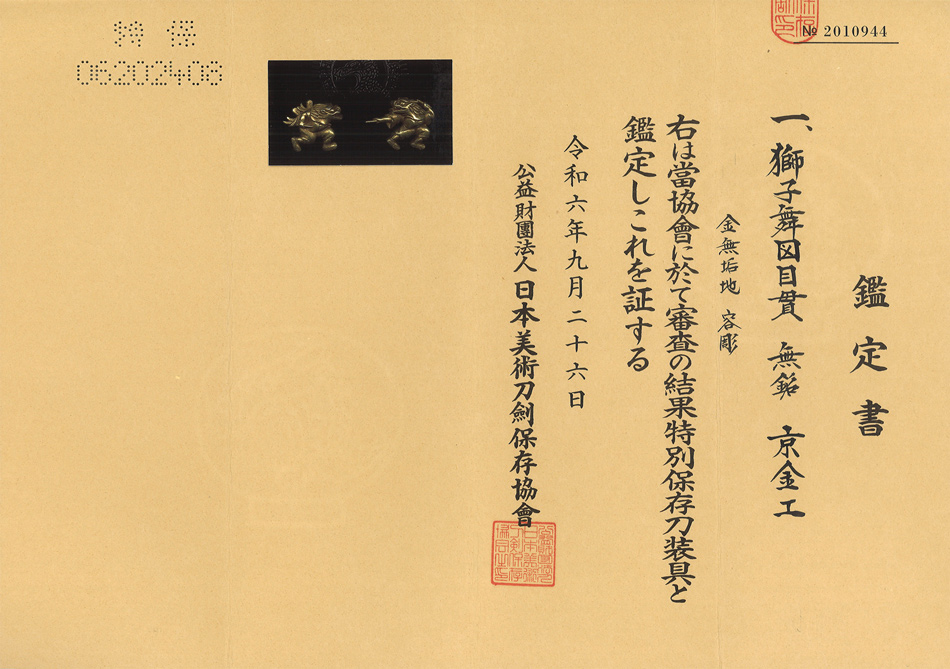 № 2010944
鑑定書
一、獅子舞図目貫 無銘 京金工
金無垢地 容彫
右は當協會に於て審査の結果特別保存刀装具と
鑑定しこれを証する
令和六年九月二十六日
公益財團法人 日本美術刀劍保存協會
特保
06202408